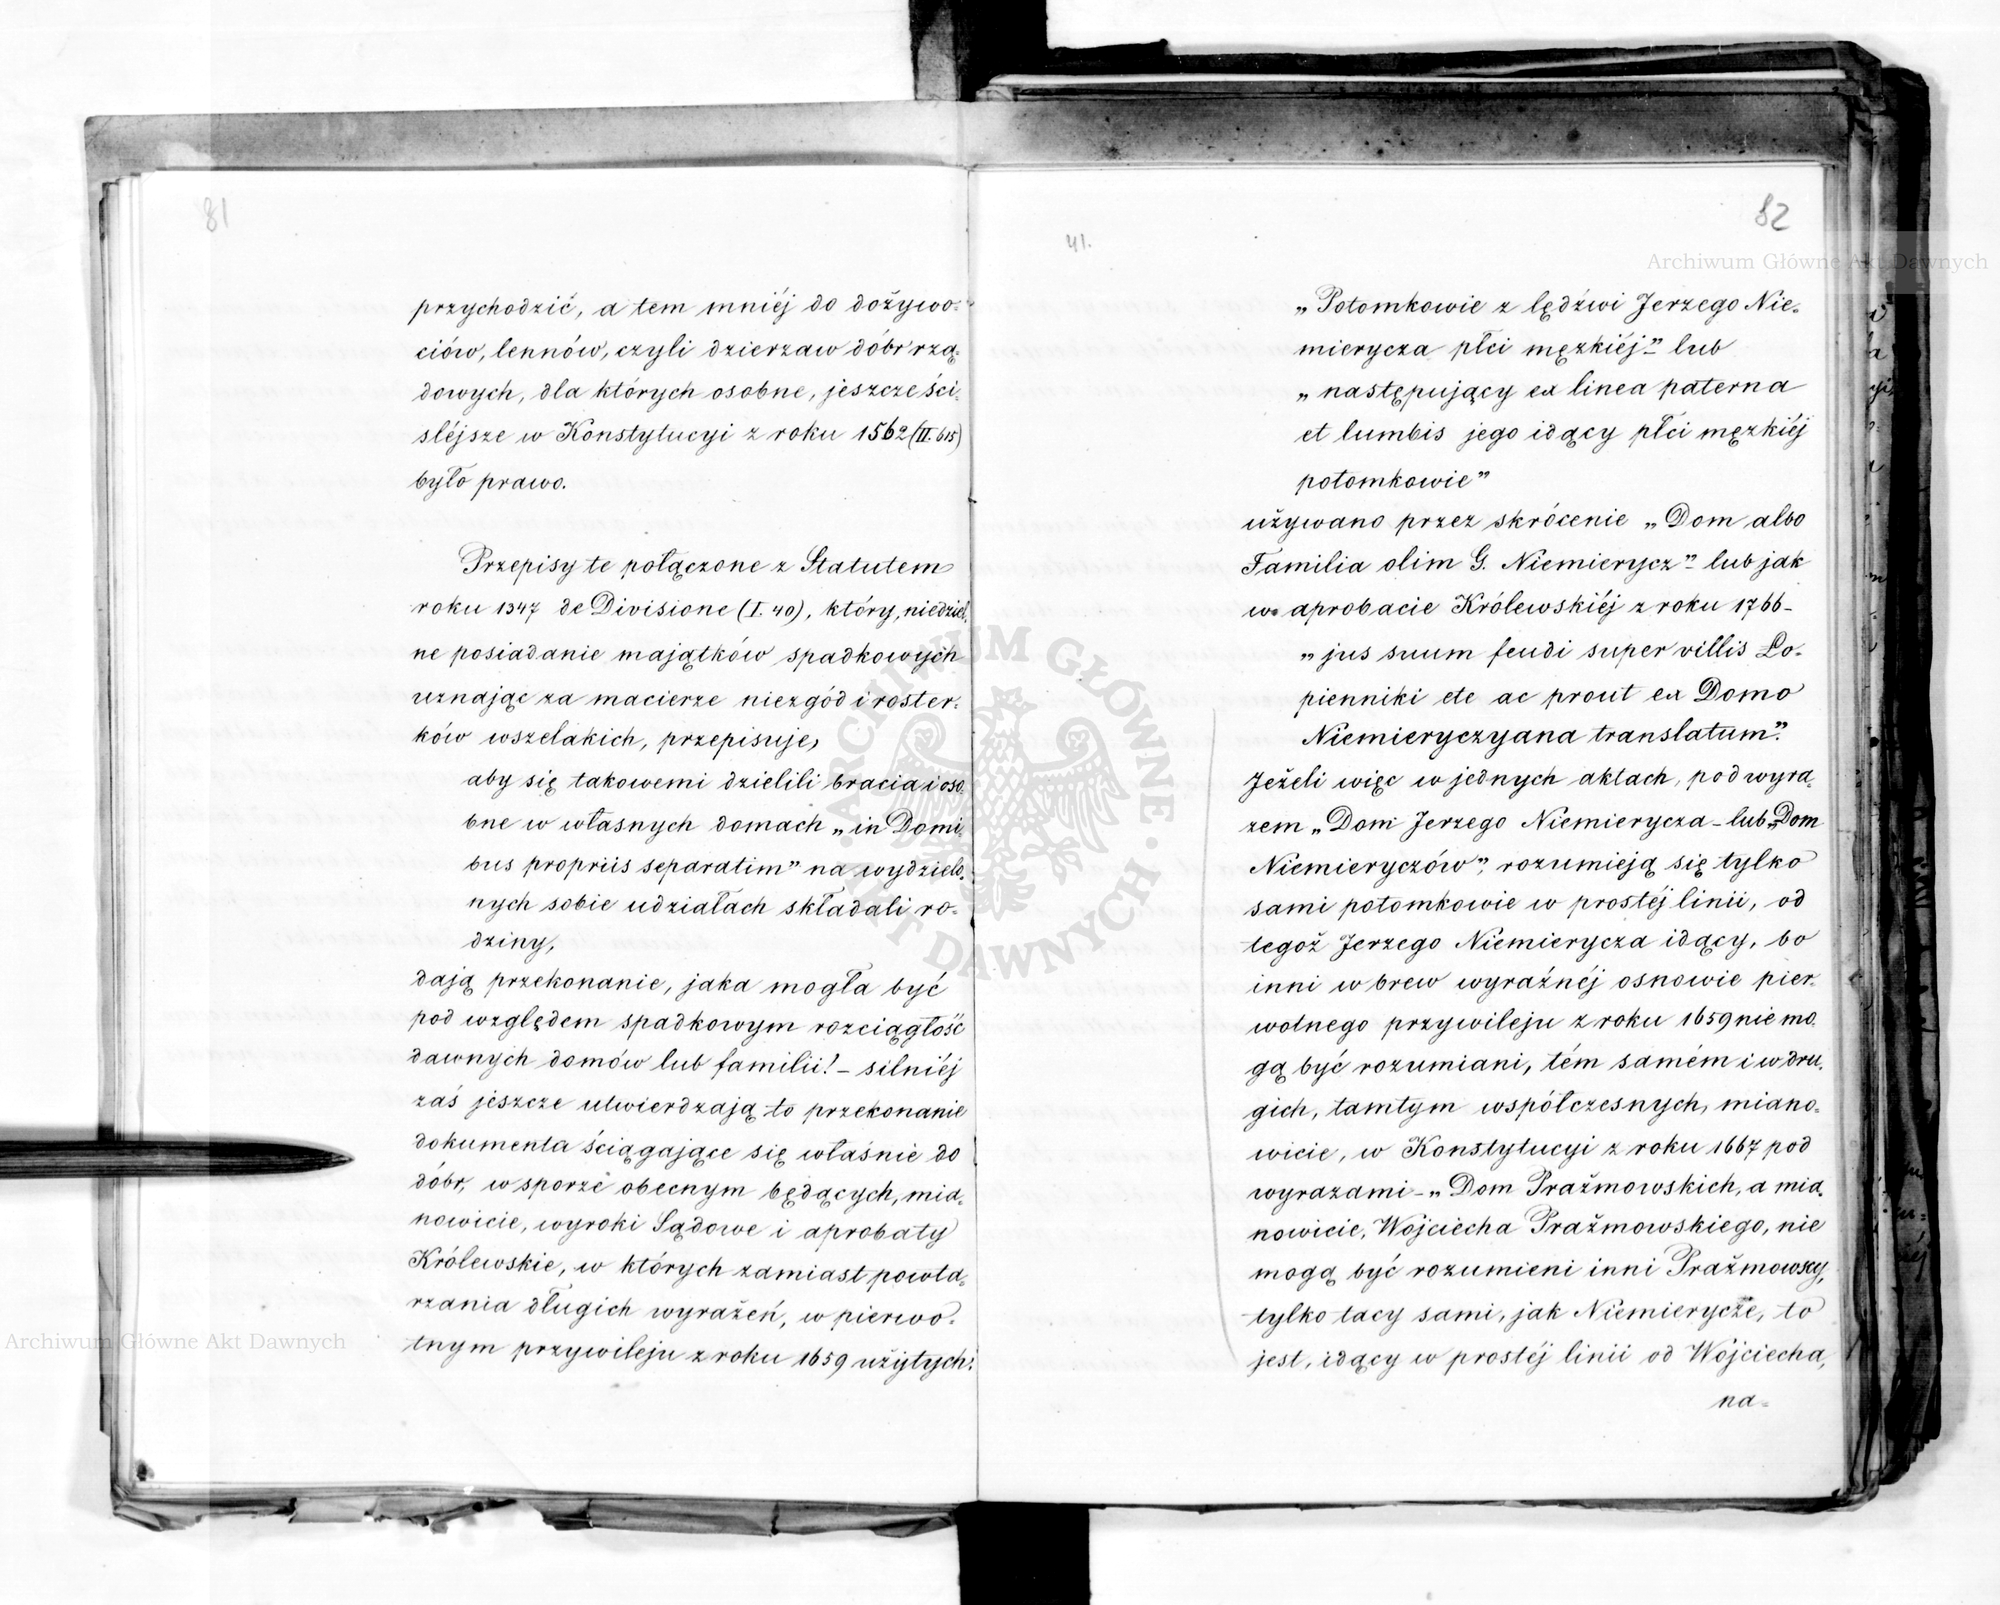 81
przychodzić, a tem mniéj do dożywo-
ciów, lennów, czyli dzierzaw dóbr rzą-
dowych, dla których osobne, jeszcze ści-
sléjsze w Konstytucyi z roku 1562 (II. 615)
było prawo.
Przepisy te połączone z Statutem
roku 1347 de Divisione (I. 40), który, niedziel-
ne posiadanie majątków spadkowych
uznając za macierze niezgód i roster-
ków wszelakich, przepisuje,
aby się takowemi dzielili bracia i oso-
bne w własnych domach „in Domi-
bus propriis separatim" na wydzielo-
nych sobie udziałach składali ro-
dziny,
dają przekonanie, jaka mogła być
pod względem spadkowym rozciągłość
dawnych domów lub familii! - silniéj
zaś jeszcze utwierdzają to przekonanie
dokumenta ściągające się właśnie do
dóbr, w sporze obecnym będących, mia-
nowicie, wyroki Sądowe i aprobaty
Królewskie, w których zamiast powta-
rzania długich wyrażeń, w pierwo-
tnym przywileju z roku 1659 użytych:
82
41.
„Potomkowie z lędźwi Jerzego Nie-
mierycza płci męzkiéj" lub
„następujący ex linea paterna
et lumbis jego idący płci męzkiéj
potomkowie"
używano przez skrócenie „Dom albo
Familia olim G. Niemierycz" lub jak
w aprobacie Królewskiéj z roku 1766 -
„jus suum feudi super villis Ło-
pienniki etc ac prout ex Domo
Niemieryczyana translatum".
Jeżeli więc w jednych aktach, pod wyra-
zem „Dom Jerzego Niemierycza - lub „Dom
Niemieryczów", rozumieją się tylko
sami potomkowie w prostéj linii, od
tegoż Jerzego Niemierycza idący, bo
inni wbrew wyraźnéj osnowie pier-
wotnego przywileju z roku 1659 nie mo-
gą być rozumiani, tém samém i w dru-
gich, tamtym współczesnych, miano-
wicie, w Konstytucyi z roku 1667 pod
wyrazami - „Dom Prażmowskich, a mia-
nowicie, Wojciecha Prażmowskiego, nie
mogą być rozumieni inni Prażmowscy,
tylko tacy sami, jak Niemierycze, to
jest, idący w prostéj linii od Wojciecha,
na-
Archiwum Główne Akt Dawnych
ARCHIWUM GŁÓWNE AKT DAWNYCH
Archiwum Główne Akt Dawnych